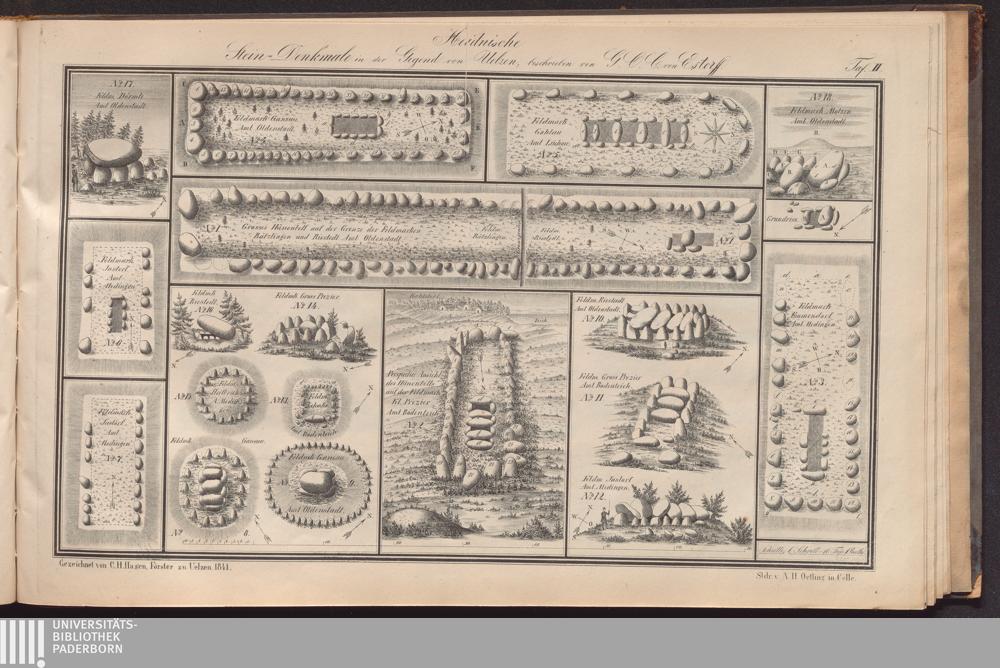 Heidnische
Stein-Denkmale in der Gegend von Uelzen, beschrieben von G. O. C. von Estorff
Taf. II
No. 17.
Feldm. Dörmte
Amt Oldenstadt
Feldmark Gansau
Amt Oldenstadt
Feldmark
Gohlau
Amt Lüchow
No. 5.
No. 18.
Feldmark Molzen
Amt Oldenstadt.
Grundriss
No. 1
Grosses Hünenbett auf der Grenze der Feldmarken
Rätzlingen und Riestedt Amt Oldenstadt
Feldm.
Rätzlingen
Feldm.
Riestedt
No. 1
Feldmark
Jastorf
Amt
Medingen
No. 6.
Feldmark
Jastorf
Amt
Medingen
No. 7.
Feldmk.
Riestedt
No. 16
Feldmk. Gross Prezier
No. 14.
No. 15
No. 13.
Bodenteich
Feldmk. Gansau.
No. 8.
Feldmck Gansau
No. 9.
Amt Oldenstadt.
Perspectiv. Ansicht
des Hünenbettes
auf der Feldmark
Kl. Prezier
Amt Bodenteich
No. 2
Feldm. Riestedt
Amt Oldenstadt.
No. 10.
Feldm. Gross Prezier
Amt Bodenteich
No. 11
Feldm. Jastorf
Amt Medingen
No. 12.
Feldmark
Emmendorf
Amt Medingen
No. 3.
Gezeichnet von C. H. Hagen, Förster zu Uelzen 1841.
Stdr. v. A. H. Oetling in Celle.
UNIVERSITÄTS-
BIBLIOTHEK
PADERBORN